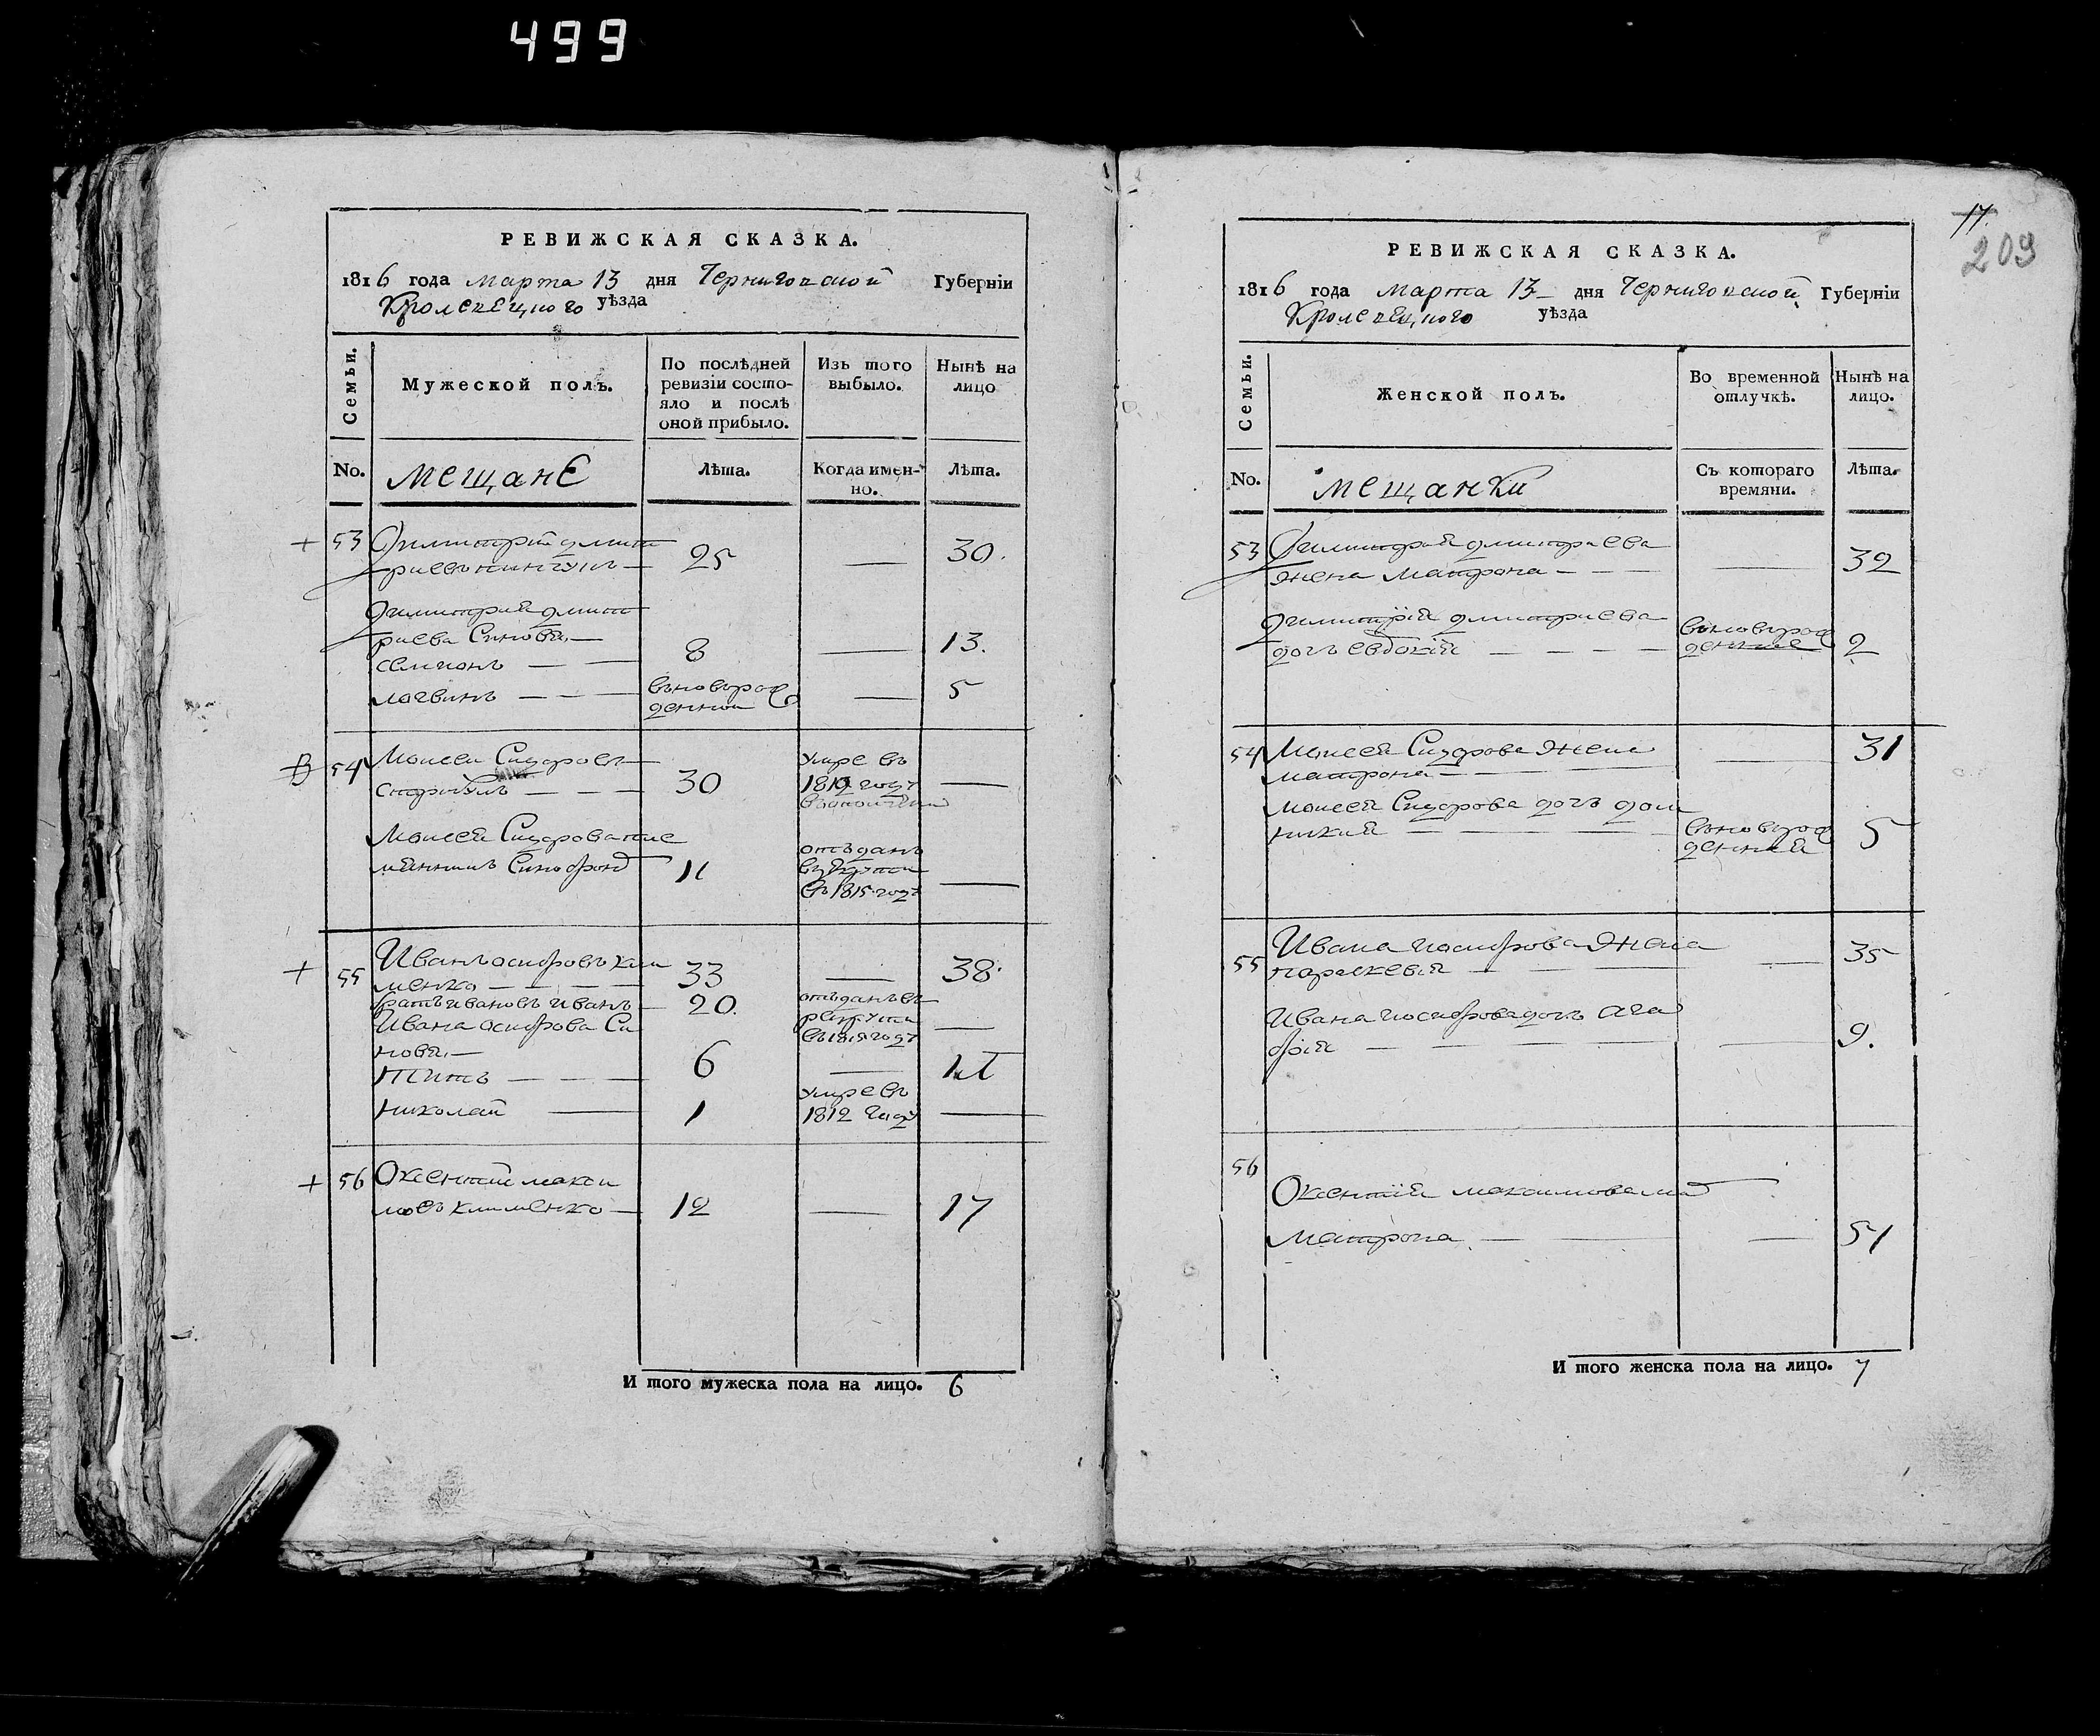 499
РЕВИЖСКАЯ СКАЗКА.
1816 года марта 13 дня Черниговской Губерніи
Кролевецкого уѣзда
Семьи.
Мужеской полъ.
По послѣдней
ревизіи состо-
яло и послѣ
оной прибыло.
Изъ того
выбыло.
Нынѣ на
лицо
No.
мещане
Лѣта.
Когда имен-
но.
Лѣта.
+ 53 Димитрій дмит
риевъ 25 — 30.
Димитрия дмит
риева Синовя —
семионъ — — 8 — 13.
логвинъ — — — вьновьрож
денной — 5
54 Моисей Сидоровъ умре въ
— — — 30 1812 году —
Моисея Сидорова пле
мянникъ 11 отъданъ
въ рекруты
въ 1815 году —
+ 55 Иванъ осиповъ кли
менко — — — 33 — 38.
братъ ивановъ иванъ — 20. отъданъ въ
рекруты —
Ивана осипова Си
новя —
титъ — — — 6 — 11
николай — 1 умре въ
1812 году —
+ 56 Оксентий макси
мовъ клименко — 12 — 17
И того мужеска пола на лицо. 6
17
209
РЕВИЖСКАЯ СКАЗКА.
1816 года марта 13 дня Черниговской Губерніи
Кролевецкого уѣзда
Семьи.
Женской полъ.
Во временной
отлучкѣ.
Нынѣ на
лицо.
No.
мещанки
Съ котораго
времяни.
Лѣта.
53 Димитрия дмитриева
жена Матрона — — — — 32
Димитрія дмитриева
дочь евдокія — — — — вьновьрож
денние 2
54 Моисея Сидорова жена — 31
матрона — — —
Моисея Сидорова дочь дом
никия — — — вьновьрож
денная 5
55 Ивана иосипова жена — 35
параскевія — — —
Ивана иосипова дочь ага
фія — — — — — 9.
56
Оксентія максимова мат
Матрона — — — 51
И того женска пола на лицо. 7